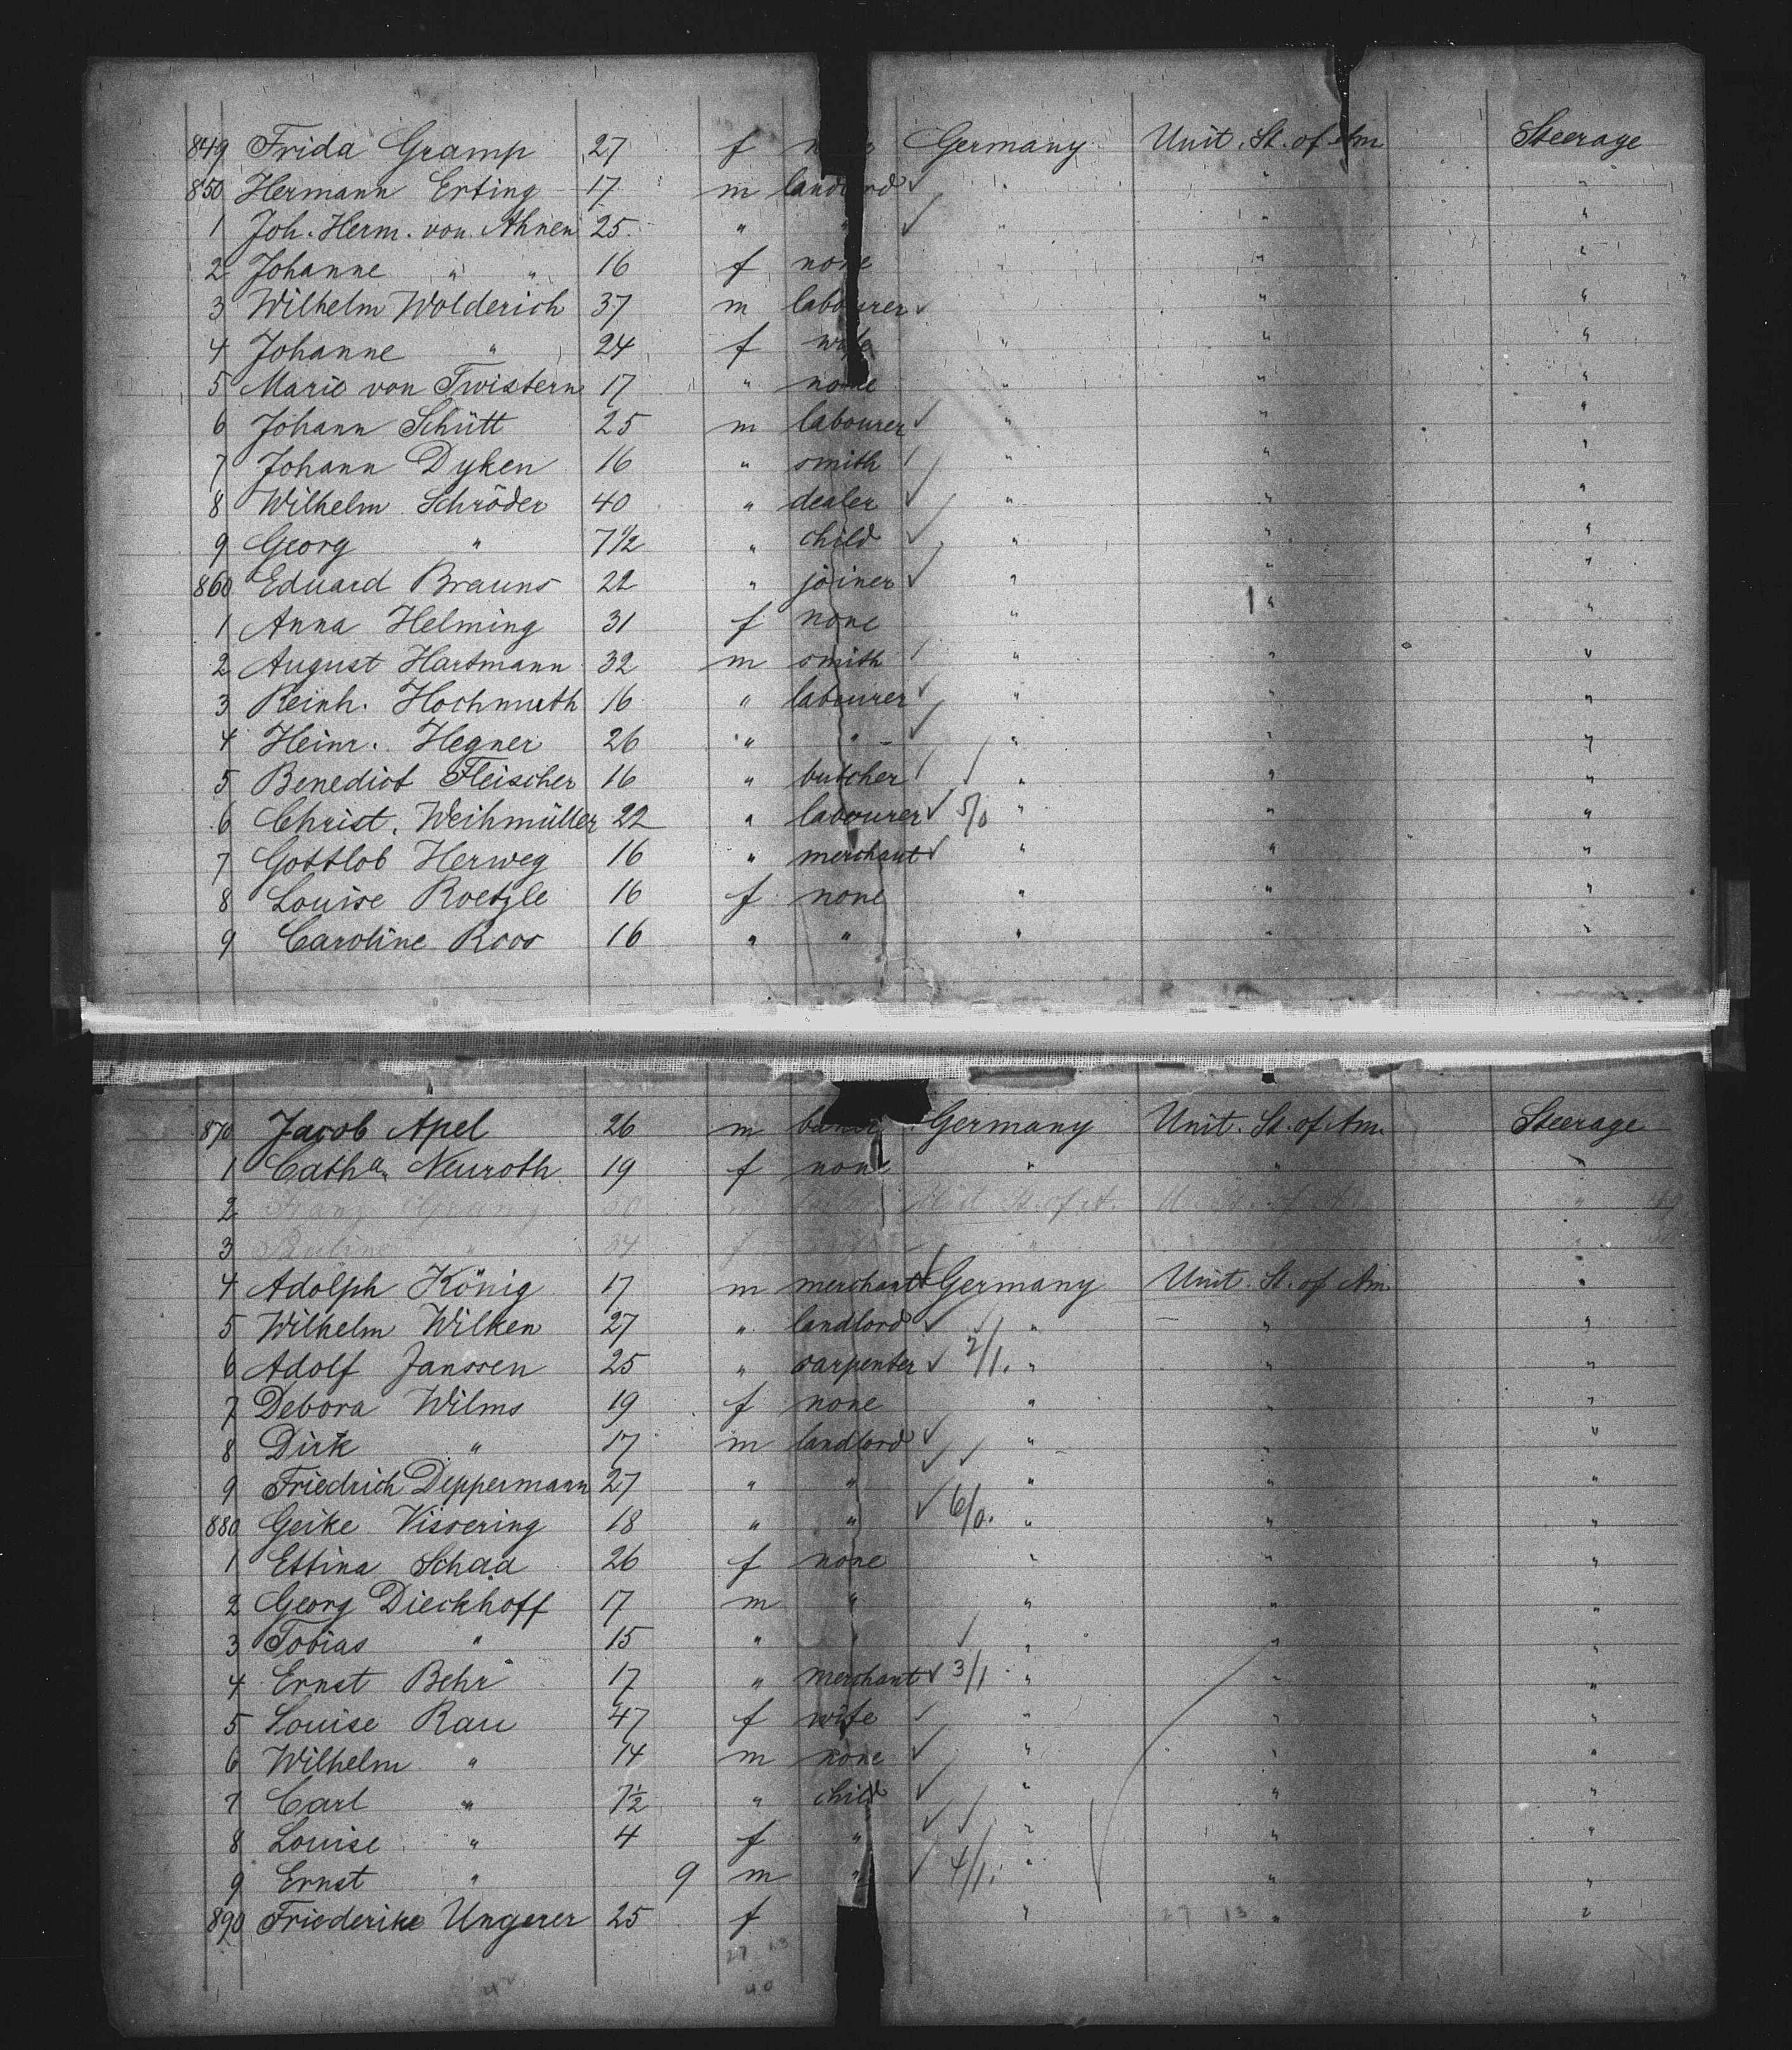 849 Frida Gramp 27 f " Germany Unit. St. of Am Steerage
850 Hermann Erting 17 m landlord ✓ " " "
1 Joh. Herm. von Ahnen 25 " " ✓ " " "
2 Johanne " " 16 f none " " "
3 Wilhelm Wolderich 37 m labourer ✓ " " "
4 Johanne " 24 f wife " " "
5 Marie von Twistern 17 " none " " "
6 Johann Schütt 25 m labourer ✓ " " "
7 Johann Dyken 16 " smith / / " " "
8 Wilhelm Schröder 40 " dealer ✓ / " " "
9 Georg " 7 1/2 " child ✓ / " " "
860 Eduard Brauns 22 " joiner ✓ " " "
1 Anna Helming 31 f none " " "
2 August Hartmann 32 m smith / " " "
3 Reinh. Hochmuth 16 " labourer ✓ " " "
4 Heinr. Hegner 26 " " ✓ " " "
5 Benedict Fleischer 16 " butcher / / " " "
6 Christ. Weihmüller 22 " labourer ✓ 5/0 " " "
7 Gottlob Herweg 16 " merchant ✓ " " "
8 Louise Roetzle 16 f none " " "
9 Caroline Roos 16 " " " " "
870 Jacob Apel 26 m Germany Unit. St. of Am. Steerage
1 Catha. Neuroth 19 f none " " "
2 Franz 30 St. of A. "
3 Pauline " 34 f " "
4 Adolph König 17 m merchant ✓ Germany Unit. St. of Am "
5 Wilhelm Wilken 27 " landlord ✓ / " " "
6 Adolf Janssen 25 " carpenter ✓ 2/1. " " "
7 Debora Wilms 19 f none " " "
8 Dirk " 17 m landlord ✓ " " "
9 Friedrich Deppermann 27 " " ✓ ✓ " " "
880 Geike Vissering 18 " " ✓ 6/0. " " "
1 Ettina Schaa 26 f none " " "
2 Georg Dieckhoff 17 m " " " "
3 Tobias " 15 " " / " " "
4 Ernst Behr 17 " merchant ✓ 3/1 " " "
5 Louise Rau 47 f wife ✓ " " "
6 Wilhelm " 14 m none ✓ " " "
7 Carl " 7 1/2 " child ✓ / " " "
8 Louise " 4 f " ✓ / " " "
9 Ernst " 9 m " ✓ 4/1. " " "
890 Friederike Ungerer 25 f " 27 13 " "
27 13
40